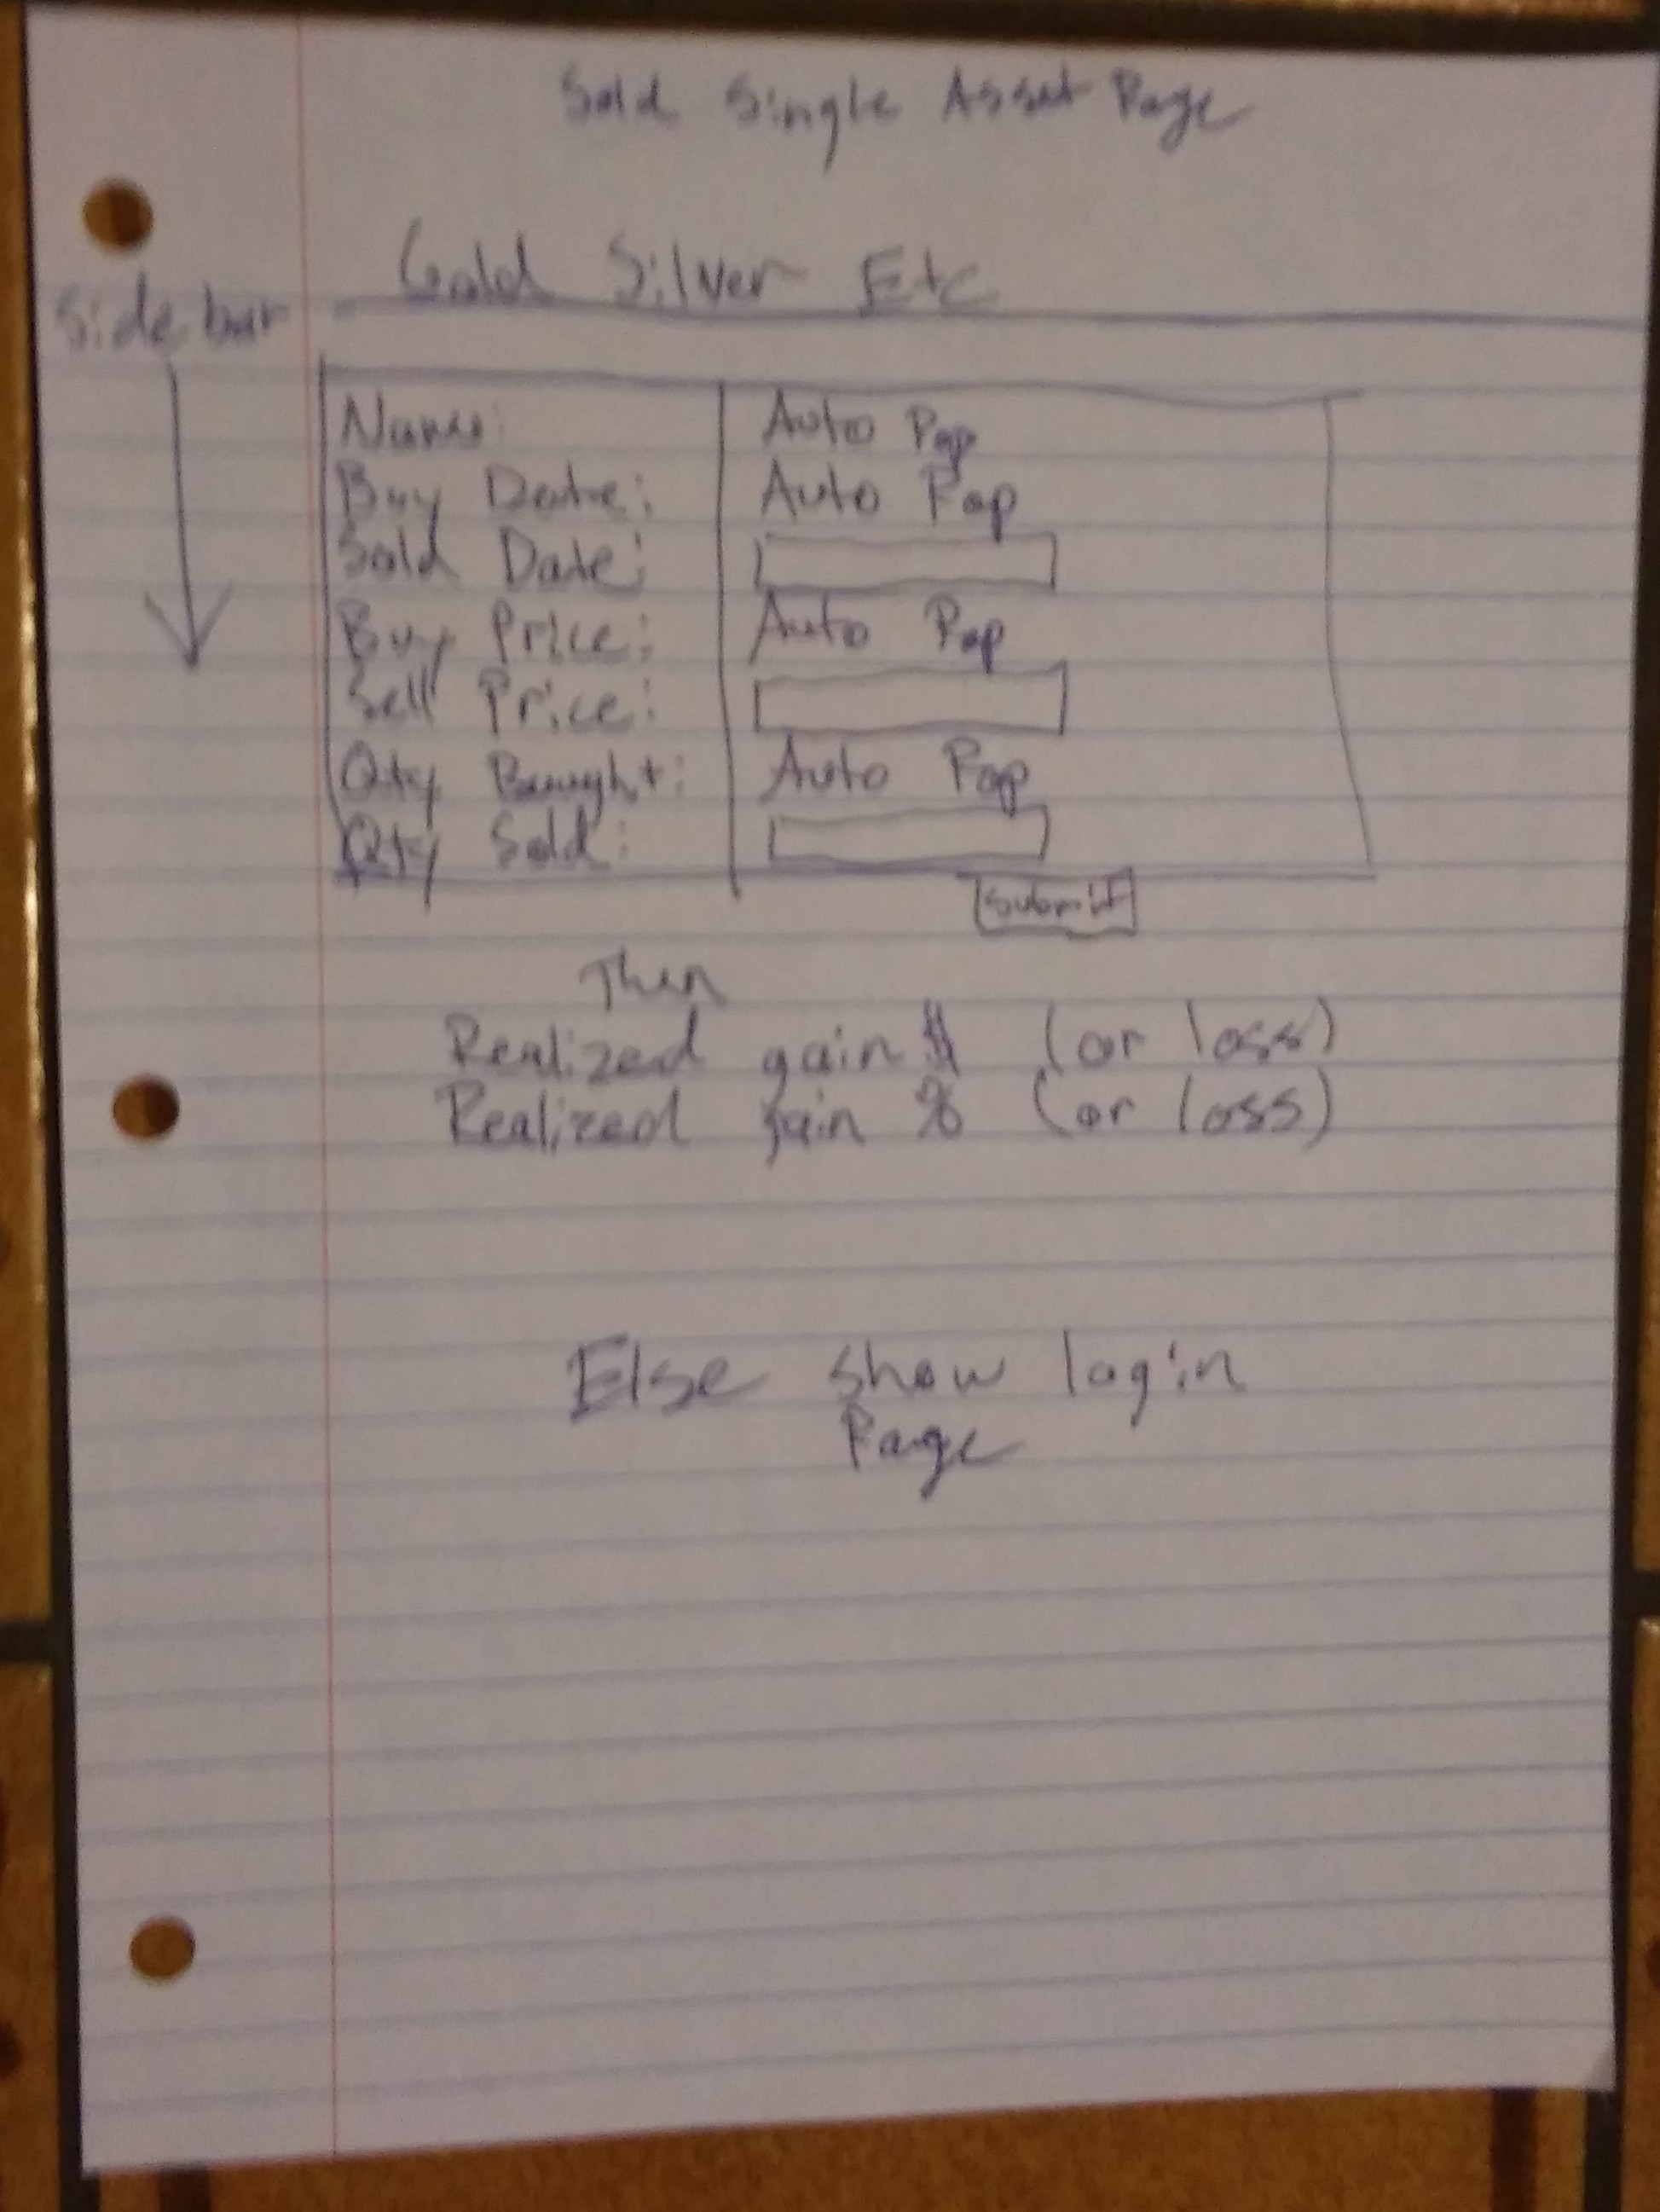 Sold Single Asset Page
Gold Silver Etc
Side bar
Name: Auto Pop
Buy Date: Auto Pop
Sold Date:
Buy Price: Auto Pop
Sell Price:
Qty Bought: Auto Pop
Qty Sold:
Submit
Then
Realized gain $ (or loss)
Realized gain % (or loss)
Else show login
Page